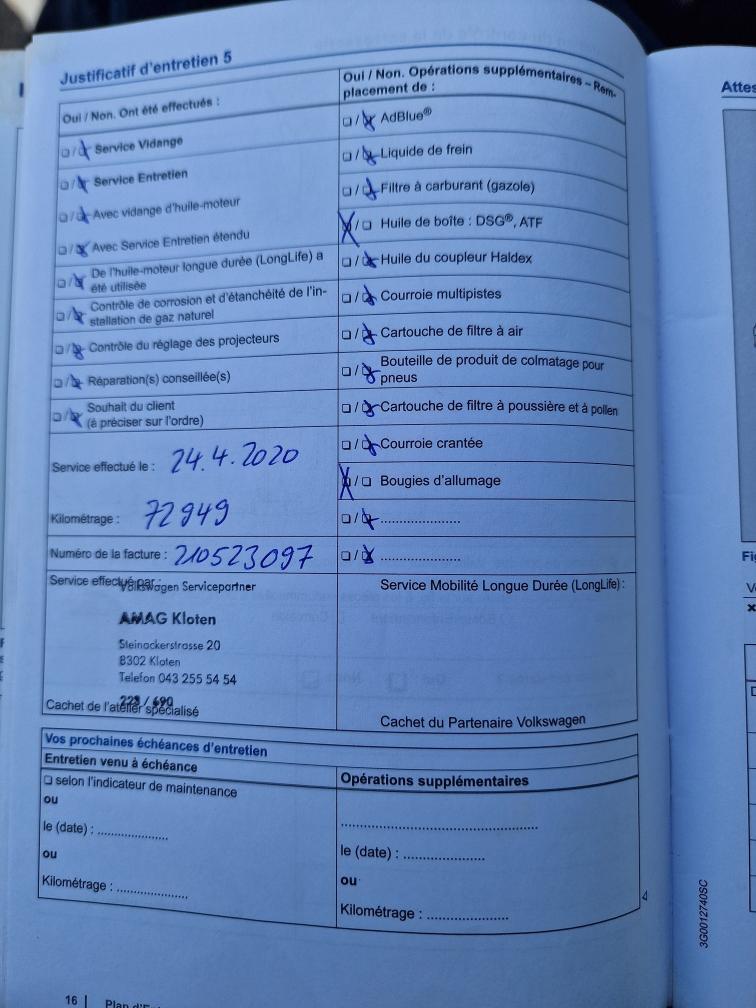 Justificatif d'entretien 5
Oui / Non. Ont été effectués :
Service Vidange
Service Entretien
Avec vidange d'huile-moteur
Avec Service Entretien étendu
De l'huile-moteur longue durée (LongLife) a
été utilisée
Contrôle de corrosion et d'étanchéité de l'in-
stallation de gaz naturel
Contrôle du réglage des projecteurs
Réparation(s) conseillée(s)
Souhait du client
(à préciser sur l'ordre)
Service effectué le : 24.4.2020
Kilométrage : 72949
Numéro de la facture : 210523097
Service effectué par :
Volkswagen Servicepartner
AMAG Kloten
Steinackerstrasse 20
8302 Kloten
Telefon 043 255 54 54
229 / 690
Cachet de l'atelier spécialisé
Oui / Non. Opérations supplémentaires – Rem-
placement de :
AdBlue®
Liquide de frein
Filtre à carburant (gazole)
Huile de boîte : DSG®, ATF
Huile du coupleur Haldex
Courroie multipistes
Cartouche de filtre à air
Bouteille de produit de colmatage pour
pneus
Cartouche de filtre à poussière et à pollen
Courroie crantée
Bougies d'allumage
Service Mobilité Longue Durée (LongLife) :
Cachet du Partenaire Volkswagen
Vos prochaines échéances d'entretien
Entretien venu à échéance
selon l'indicateur de maintenance
ou
le (date) : ..................
ou
Kilométrage : ..................
Opérations supplémentaires
le (date) : ..................
ou
Kilométrage : ..................
16
3G0012740SC